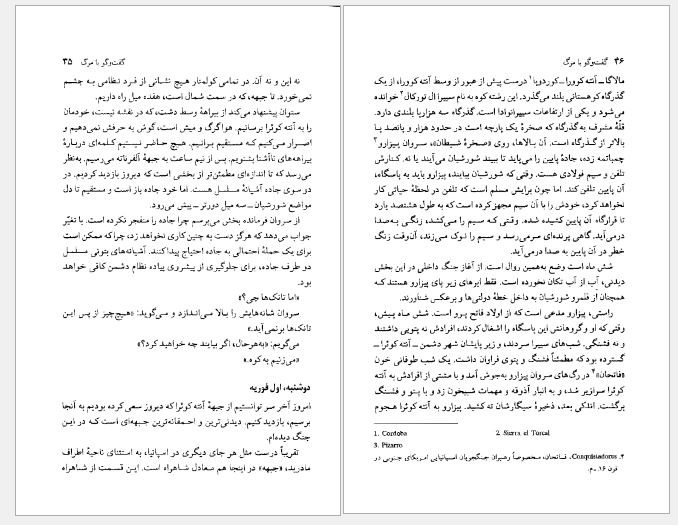 گفت‌وگو با مرگ ۳۵
نه این و نه آن. در تمامی کوله‌تار هیچ نشانی از فرد نظامی به چشم
نمی‌خورد. تا جبهه، که در سمت شمال است، هفده میل راه داریم.
ستوان پیشنهاد می‌کند از بیراههٔ وسط دشت، که در نقشه نیست، خودمان
را به آنته کوئرا برسانیم. هوا گرگ و میش است، گوش به حرفش نمی‌دهیم و
اصرار می‌کنیم که مستقیم برانیم. هیچ حاضر نیستیم کلمه‌ای دربارهٔ
بیراهه‌های ناآشنا بشنویم. پس از نیم ساعت به جبههٔ آلفرناته می‌رسیم. به‌نظر
می‌رسد که تا اندازه‌ای مطمئن‌تر از بخشی است که دیروز بازدید کردیم. در
دو سوی جاده آشیانهٔ مسلسل هست. اما خود جاده باز است و مستقیم تا دل
مواضع شورشیان ـ سه میل دورتر ـ پیش می‌رود.
از سروان فرمانده بخش می‌پرسم چرا جاده را منفجر نکرده است. با تغیّر
جواب می‌دهد که هرگز دست به چنین کاری نخواهد زد، چرا که ممکن است
برای یک حملهٔ احتمالی به جاده احتیاج پیدا کنند. آشیانه‌های بتونی مسلسل
دو طرف جاده، برای جلوگیری از پیشروی پیاده نظام دشمن کافی خواهد
بود.
«اما تانک‌ها چی؟»
سروان شانه‌هایش را بالا می‌اندازد و می‌گوید: «هیچ‌چیز از پس این
تانک‌ها برنمی‌آید.»
می‌گویم: «به‌هرحال، اگر بیایند چه خواهید کرد؟»
«می‌زنیم به کوه.»
دوشنبه، اول فوریه
امروز آخر سر توانستیم از جبههٔ آنته کوئرا که دیروز سعی کرده بودیم به آنجا
برسیم، بازدید کنیم. دیدنی‌ترین و احمقانه‌ترین جبهه‌ای است که در این
جنگ دیده‌ام.
تقریباً درست مثل هر جای دیگری در اسپانیا، به استثنای ناحیهٔ اطراف
مادرید، «جبهه» در اینجا هم معادل شاهراه است. این قسمت از شاهراه
۳۶ گفت‌وگو با مرگ
مالاگا ـ آنته کوورا ـ کوردوبا۱ درست پیش از عبور از وسط آنته کوورا، از یک
گذرگاه کوهستانی بلند می‌گذرد. این رشته کوه به نام سییرا ال تورکال۲ خوانده
می‌شود و یکی از ارتفاعات سییرانوادا است. گذرگاه سه هزارپا بلندی دارد.
قلّهٔ مشرف به گذرگاه که صخرهٔ یک پارچه است در حدود هزار و پانصد پا
بالاتر از گذرگاه است. آن بالاها، روی «صخرهٔ شیطان»، سروان پیزارو۳
چمباتمه زده، جادهٔ پایین را می‌پاید تا ببیند شورشیان می‌آیند یا نه. کنارش
تلفن و سیم فولادی هست. وقتی که شورشیان بیایند، پیزارو باید به پاسگاه،
آن پایین تلفن کند. اما چون برایش مسلم است که تلفن در لحظهٔ حیاتی کار
نخواهد کرد، خودش را با آن سیم مجهز کرده است که به طول هشتصد یارد
تا قرارگاه آن پایین کشیده شده. وقتی که سیم را می‌کشد، زنگی به‌صدا
درمی‌آید. گاهی پرنده‌ای سرمی‌رسد و سیم را نوک می‌زند، آن‌وقت زنگ
خطر در آن پایین به صدا درمی‌آید.
شش ماه است وضع به‌همین روال است. از آغاز جنگ داخلی در این بخش
دیدنی، آب از آب تکان نخورده است. فقط ابرهای زیر پای پیزارو هستند که
همچنان از قلمرو شورشیان به داخل خطهٔ دولتی‌ها و برعکس شناورند.
راستی، پیزارو مدعی است که از اولاد فاتح پرو است. شش ماه پیش،
وقتی که او و گروهانش این پاسگاه را اشغال کردند، افرادش نه پتویی داشتند
و نه فشنگی. شب‌های سییرا سردند، و زیر پایشان شهر دشمن ـ آنته کوئرا ـ
گسترده بود که مطمئناً فشنگ و پتوی فراوان داشت. یک شب طوفانی خون
«فاتحان»۴ در رگ‌های سروان پیزارو به‌جوش آمد و با مشتی از افرادش به آنته
کوئرا سرازیر شد، و به انبار آذوقه و مهمات شبیخون زد و با پتو و فشنگ
برگشت. اندکی بعد، ذخیرهٔ سیگارشان ته کشید. پیزارو به آنته کوئرا هجوم
1. Cordoba 2. Sierra el Torcal
3. Pizarro
۴. Conquistadores، فاتحان، مخصوصاً رهبران جنگجویان اسپانیایی امریکای جنوبی در
قرن ۱۶ ـ م.